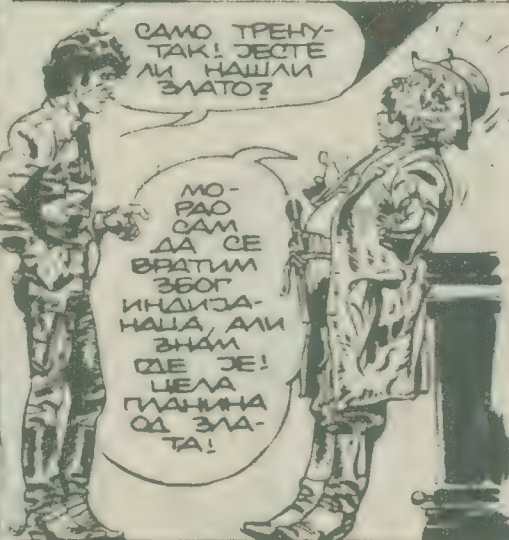 САМО ТРЕНУ-
ТАК! ЈЕСТЕ
ЛИ НАШЛИ
ЗЛАТО?
МО-
РАО
САМ
ДА СЕ
ВРАТИМ
ЗБОГ
ИНДИЈА-
НАЦА, АЛИ
ЗНАМ
ГДЕ ЈЕ!
ЦЕЛА
ПЛАНИНА
ОД ЗЛА-
ТА!